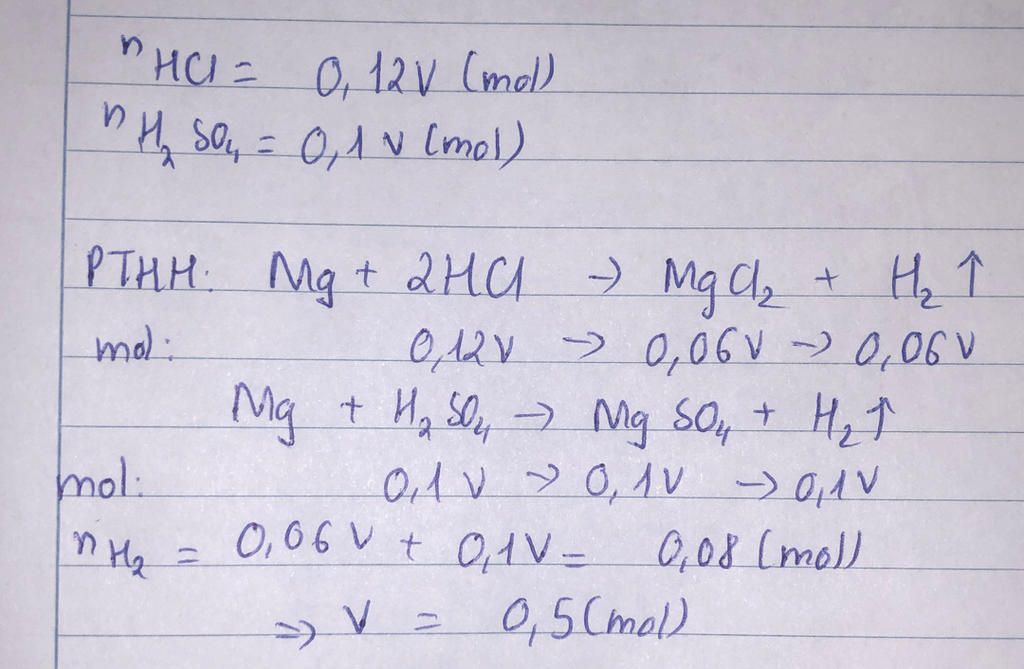 nHCl = 0,12V (mol)
nH₂SO₄ = 0,1V (mol)
PTHH: Mg + 2HCl → MgCl₂ + H₂↑
mol: 0,12V → 0,06V → 0,06V
Mg + H₂SO₄ → MgSO₄ + H₂↑
mol: 0,1V → 0,1V → 0,1V
nH₂ = 0,06V + 0,1V = 0,08 (mol)
=> V = 0,5 (mol)